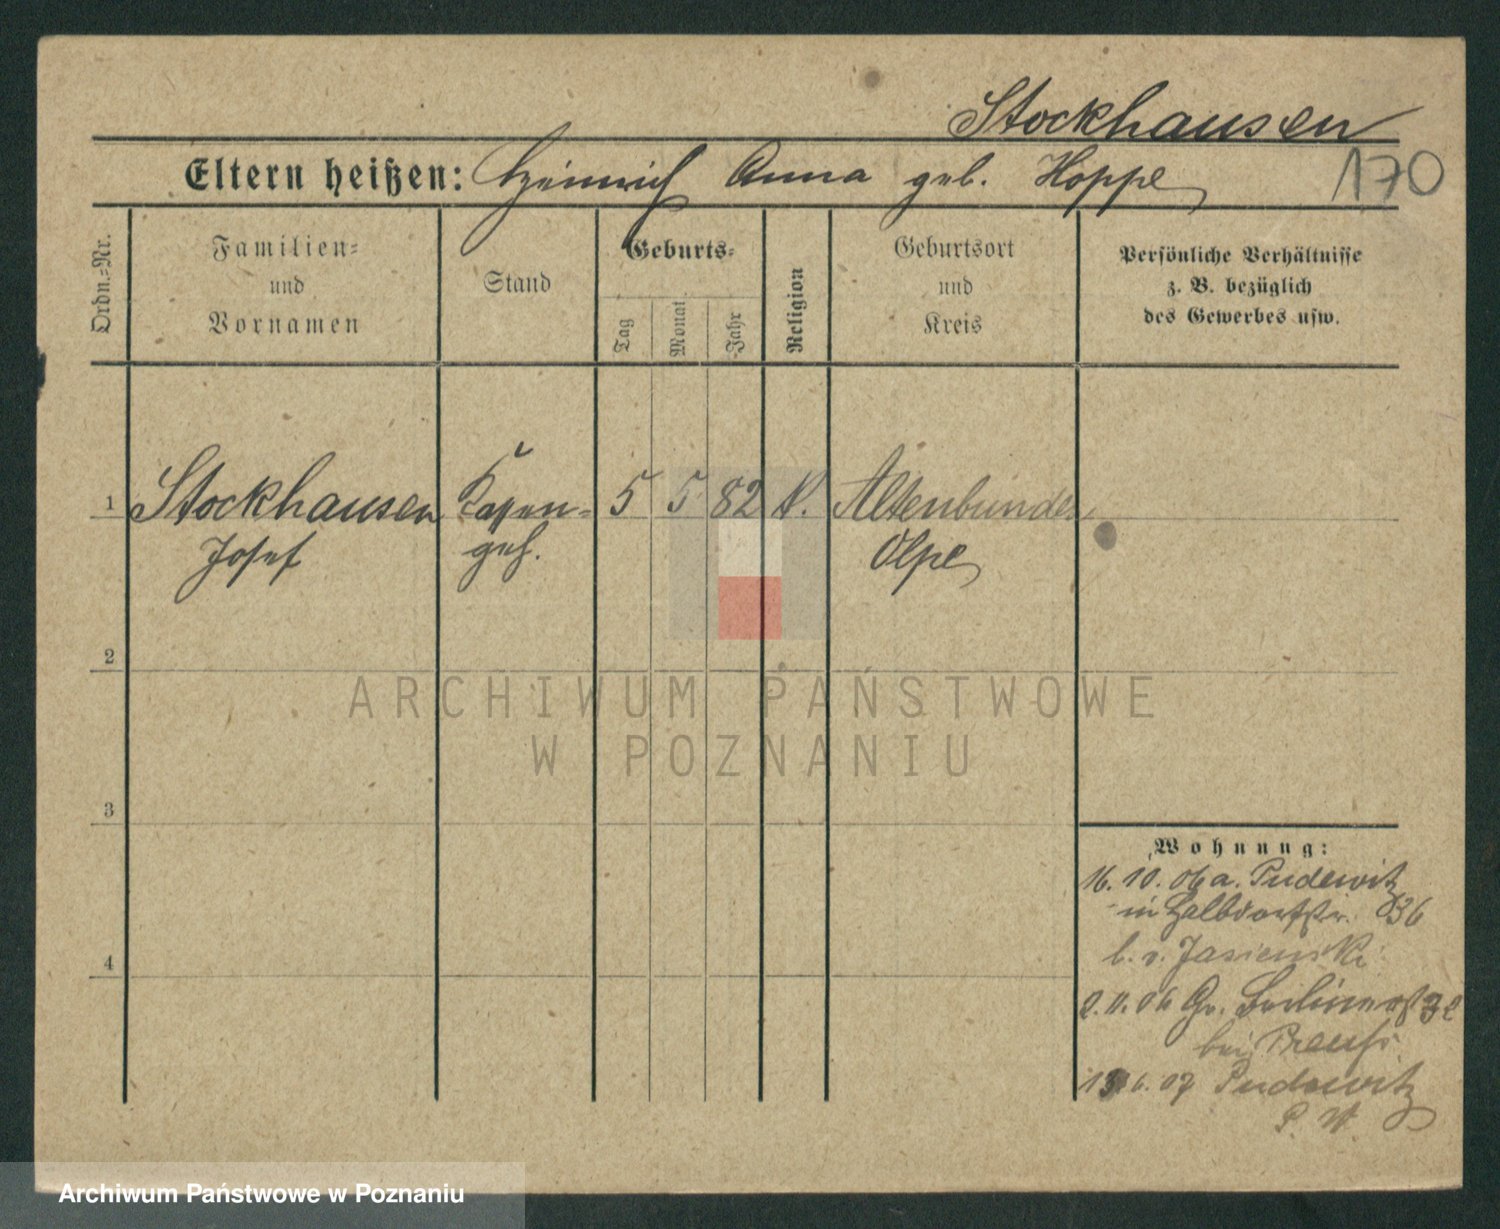 Stockhausen
Eltern heißen: Heinrich Anna geb. Hoppe
170
Ordn.-Nr.
Familien-
und
Vornamen
Stand
Geburts-
Tag
Monat
Jahr
Religion
Geburtsort
und
Kreis
Persönliche Verhältnisse
z. B. bezüglich
des Gewerbes usw.
1
Stockhausen
Josef
geh.
5
5
82
K.
Olpe
2
3
4
Wohnung:
16. 10. 06 a. Pudewitz
in Halbdorfstr. 36
b. v. Jasienski
2. 11. 06 Gr. Berlinerst
bei Preuß
6. 07 Pudewitz
P. W.
ARCHIWUM PAŃSTWOWE
W POZNANIU
Archiwum Państwowe w Poznaniu